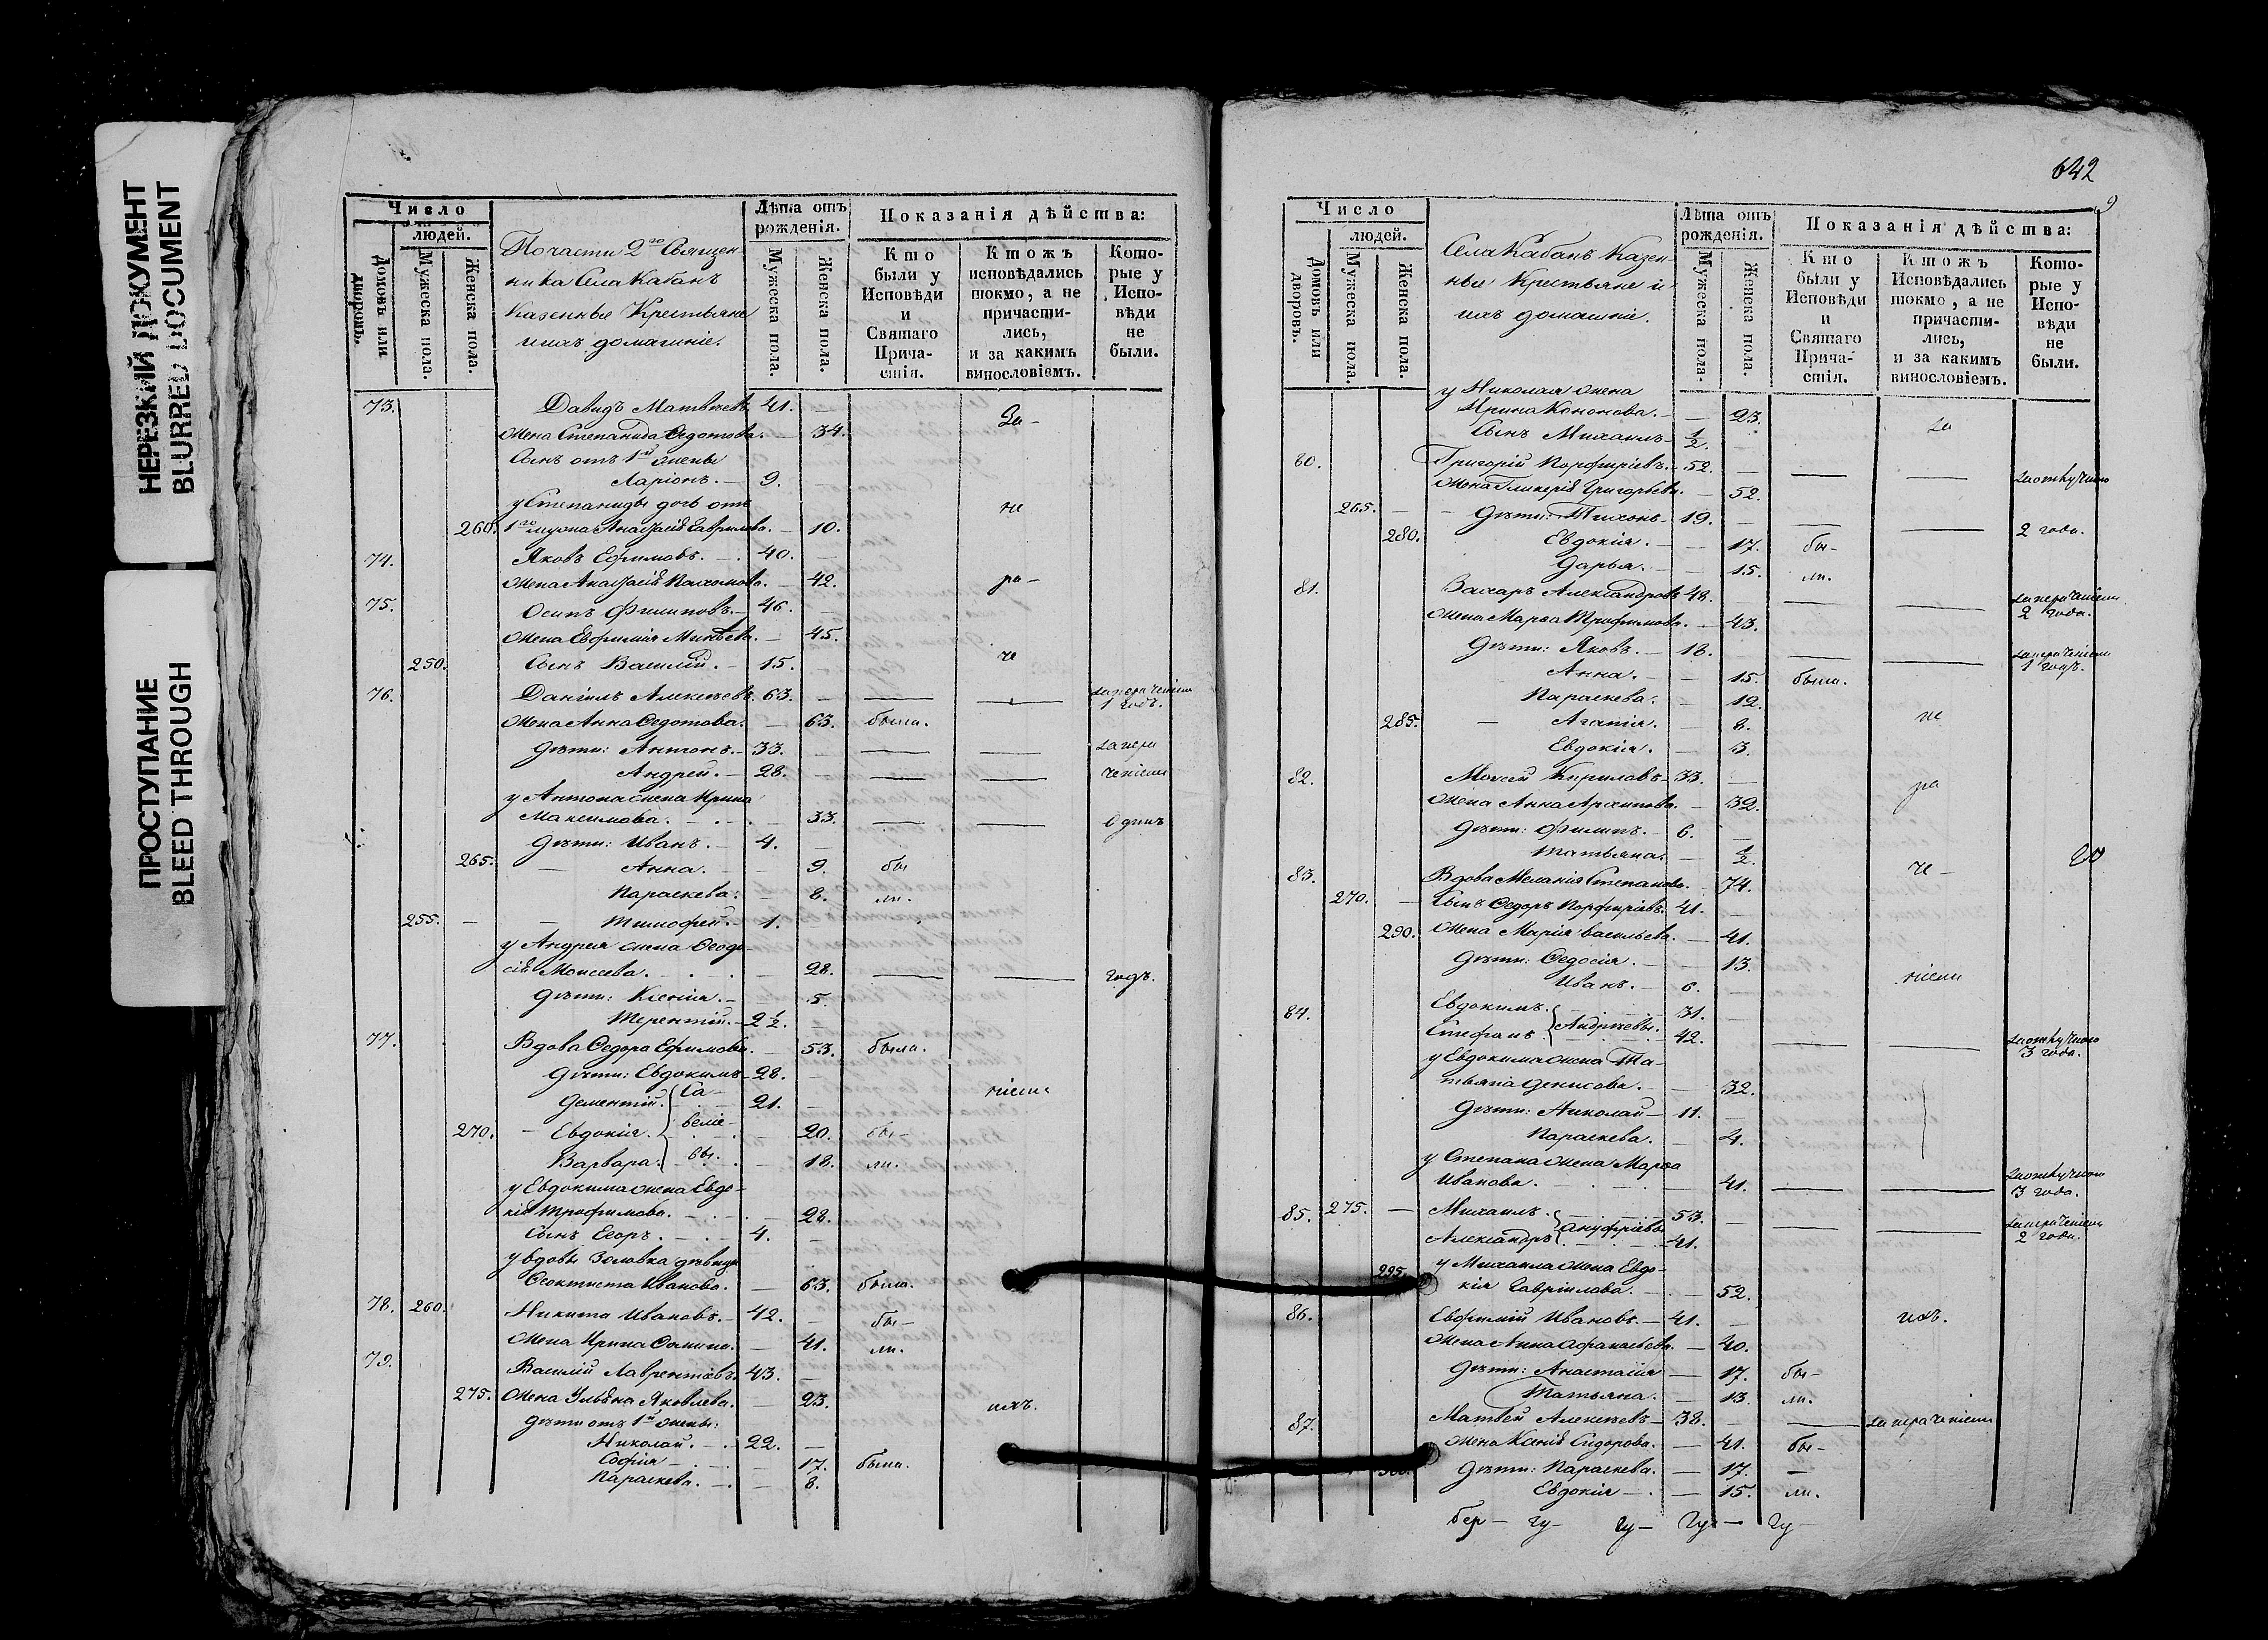 НЕРЕЗКИЙ ДОКУМЕНТ
BLURRED DOCUMENT
ПРОСТУПАНИЕ
BLEED THROUGH
Число
людей.
Домовъ или дворовъ.
Мужеска пола.
Женска пола.
По части 2го Священ-
ника Села Кабанъ
Казенные Крестьяне
и ихъ домашніе.
Лѣта отъ рожденія.
Мужеска пола.
Женска пола.
Показанія дѣйства:
Кто были у Исповѣди и Святаго Прича-стія.
Ктожъ исповѣдались токмо, а не причасти-лись, и за какимъ винословіемъ.
Кото-рые у Испо-вѣди не были.
73. Давидъ Матвѣевъ 41. — За-
жена Степанида Ѳедотова. — 34.
Сынъ отъ 1й жены
Ларіонъ. — 9. —
у Степаниды дочь отъ не
260. 1го мужа Анастасія Гаврилова. — 10.
74. Яковъ Ефимовъ. — 40. —
жена Анастасія Пахомова. — 42. ра-
75. Осипъ Филиповъ. — 46. —
жена Евфимія Минѣева. — 45.
250. Сынъ Василій. — 15. — че
76. Даніилъ Алексѣевъ. 63. — — — за нераченіемъ 1 годъ.
жена Анна Ѳедотова. — 63. была.
дѣти: Антонъ. — 33. — — — за нера
Андрей. — 28. — — — ченіемъ
у Антона жена Ирина
Максимова. — 33. — — одинъ
дѣти: Иванъ. — 4. —
265. — Анна. — 9. бы
Параскева. — 8. ли.
255. — — Тимофей. — 1. —
у Андрея жена Ѳеодо-
сія Моисеева. — 28. — — годъ.
дѣти: Ксенія. — 5.
Терентій. — 2 1/2. —
77. Вдова Ѳедора Ефимова. — 53. была.
дѣти: Евдокимъ — 28. —
Дементій. Са- 21. — ніемъ
270. — Евдокія. веліе- — 20. бы-
Варвара. вы. — 18. ли.
у Евдокима жена Евдо-
кія Трофимова. — 28.
Сынъ Егоръ. — 4. —
у вдовы Золовка дѣвица
Ѳеоктиста Иванова. — 63. была.
78. 260. Никита Ивановъ. — 42. — бы-
жена Ирина Ѳомина. — 41. ли.
79. Василій Лаврентіевъ. 43. —
275. жена Ульяна Яковлева. — 23. ихъ.
дѣти отъ 1й жены:
Николай. — 22. —
Софія — 17. была.
Параскева. — 8.
642
Число
людей.
Домовъ или дворовъ.
Мужеска пола.
Женска пола.
Села Кабанъ Казен-
ные Крестьяне и
ихъ домашніе.
Лѣта отъ рожденія.
Мужеска пола.
Женска пола.
Показанія дѣйства:
Кто были у Исповѣди и Святаго Прича-стія.
Ктожъ Исповѣдались токмо, а не причасти-лись, и за какимъ винословіемъ.
Кото-рые у Испо-вѣди не были.
у Николая жена
Ирина Кононова. — 23. за
Сынъ Михаилъ — 1/2.
80. Григорій Порфиріевъ. — 52. — — — за отлучкою
жена Гликерія Григорьева. — 52.
265. — — дѣти: Тихонъ — 19. — — — 2 года.
280. Евдокія. — — 17. бы-
Дарья. — — 15. ли.
81. Захаръ Александровъ 48. — — за нераченіемъ 2 года.
жена Марѳа Трофимова. — 43.
дѣти: Яковъ. — 18. — — — за нераченіемъ 1 годъ.
Анна. — — 15. была.
Параскева. — 12.
285. — Агапія. — 8. не
Евдокія. — 3.
82. Моисей Кириловъ — 33. —
жена Анна Архипова. — 32. ра
дѣти: Филипъ. — 6. —
Татьяна. — 1/2.
83. Вдова Меланія Степанова. — 74. че-
270. — Сынъ Ѳедоръ Порфиріевъ. 41. —
290. жена Марія Васильева. — 41.
дѣти: Ѳедосія. — 13.
Иванъ. — 6. — ніемъ
84. Евдокимъ. 31. —
Стефанъ. Андреевы. 42. — — за отлучкою 3 года.
у Евдокима жена Та-
тьяна Денисова. — 32.
дѣти: Николай — 11. —
Параскева. — 4.
у Степана жена Марѳа
Иванова. — 41. — — за отлучкою 3 года.
85. 275. — Михаилъ. 53. — — — за нераченіемъ 2 года.
Александръ Ануфріевы 41.
295. у Михаила жена Евдо-
кія Гавріилова. — 52.
86. Евфимій Ивановъ. — 41. — ихъ.
жена Анна Афанасьева. — 40.
дѣти: Анастасія — 17. бы-
Татьяна. — 13. ли.
87. Матвей Алексѣевъ — 38. — — за нераченіемъ
жена Ксенія Сидорова. — 41. бы-
300. дѣти: Параскева. — 17. —
Евдокія — — 15. ли.